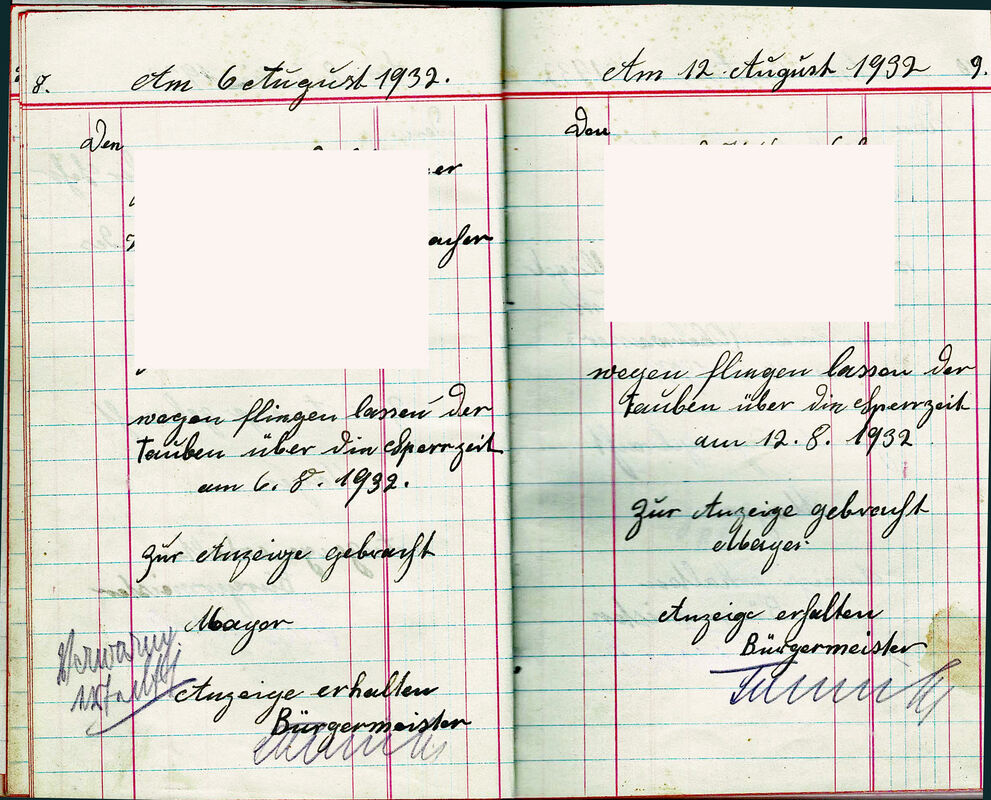 8. Am 6 August 1932.
Den
er
acher
wegen fliegen lassen der
Tauben über die Sperrzeit
am 6. 8. 1932.
zur Anzeige gebracht
Mayer
Verwarnung
Anzeige erhalten
Bürgermeister
Am 12. August 1932 9.
Den
wegen fliegen lassen der
Tauben über die Sperrzeit
am 12. 8. 1932
zur Anzeige gebracht
Mayer
Anzeige erhalten
Bürgermeister